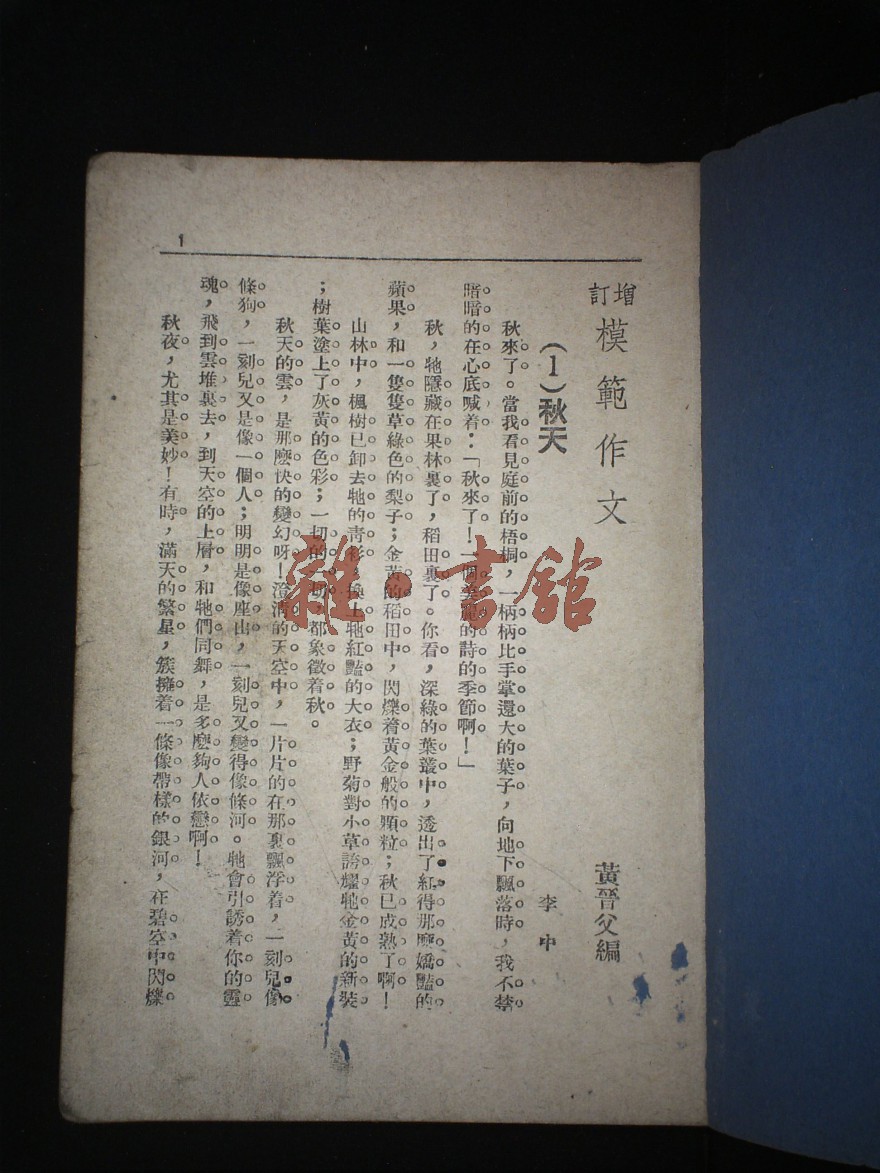 增訂模範作文
黃晉父編
(1)秋天
李中
秋來了。當我看見庭前的梧桐，一柄柄比手掌還大的葉子，向地下飄落時，我不禁
暗暗的在心底喊着：「秋來了！一個美麗的詩的季節啊！」
秋，牠隱藏在果林裏了，稻田裏了。你看，深綠的葉叢中，透出了紅得那麼嬌豔的
蘋果，和一隻隻草綠色的梨子；金黃的稻田中，閃爍着黃金般的顆粒；秋已成熟了啊！
山林中，楓樹已卸去牠的青衫，換上牠紅豔的大衣；野菊對小草誇耀牠金黃的新裝
；樹葉塗上了灰黃的色彩；一切的一切，都象徵着秋。
秋天的雲，是那麼快的變幻呀！澄清的天空中，一片片的在那裏飄浮着，一刻兒像
條狗，一刻兒又是像一個人；明明是像座山，一刻兒又變得像條河。牠會引誘着你的靈
魂，飛到雲堆裏去，到天空的上層，和牠們同舞，是多麼夠人依戀啊！
秋夜，尤其是美妙！有時，滿天的繁星，簇擁着一條像帶樣的銀河，在碧空中閃爍
1
雜·書館